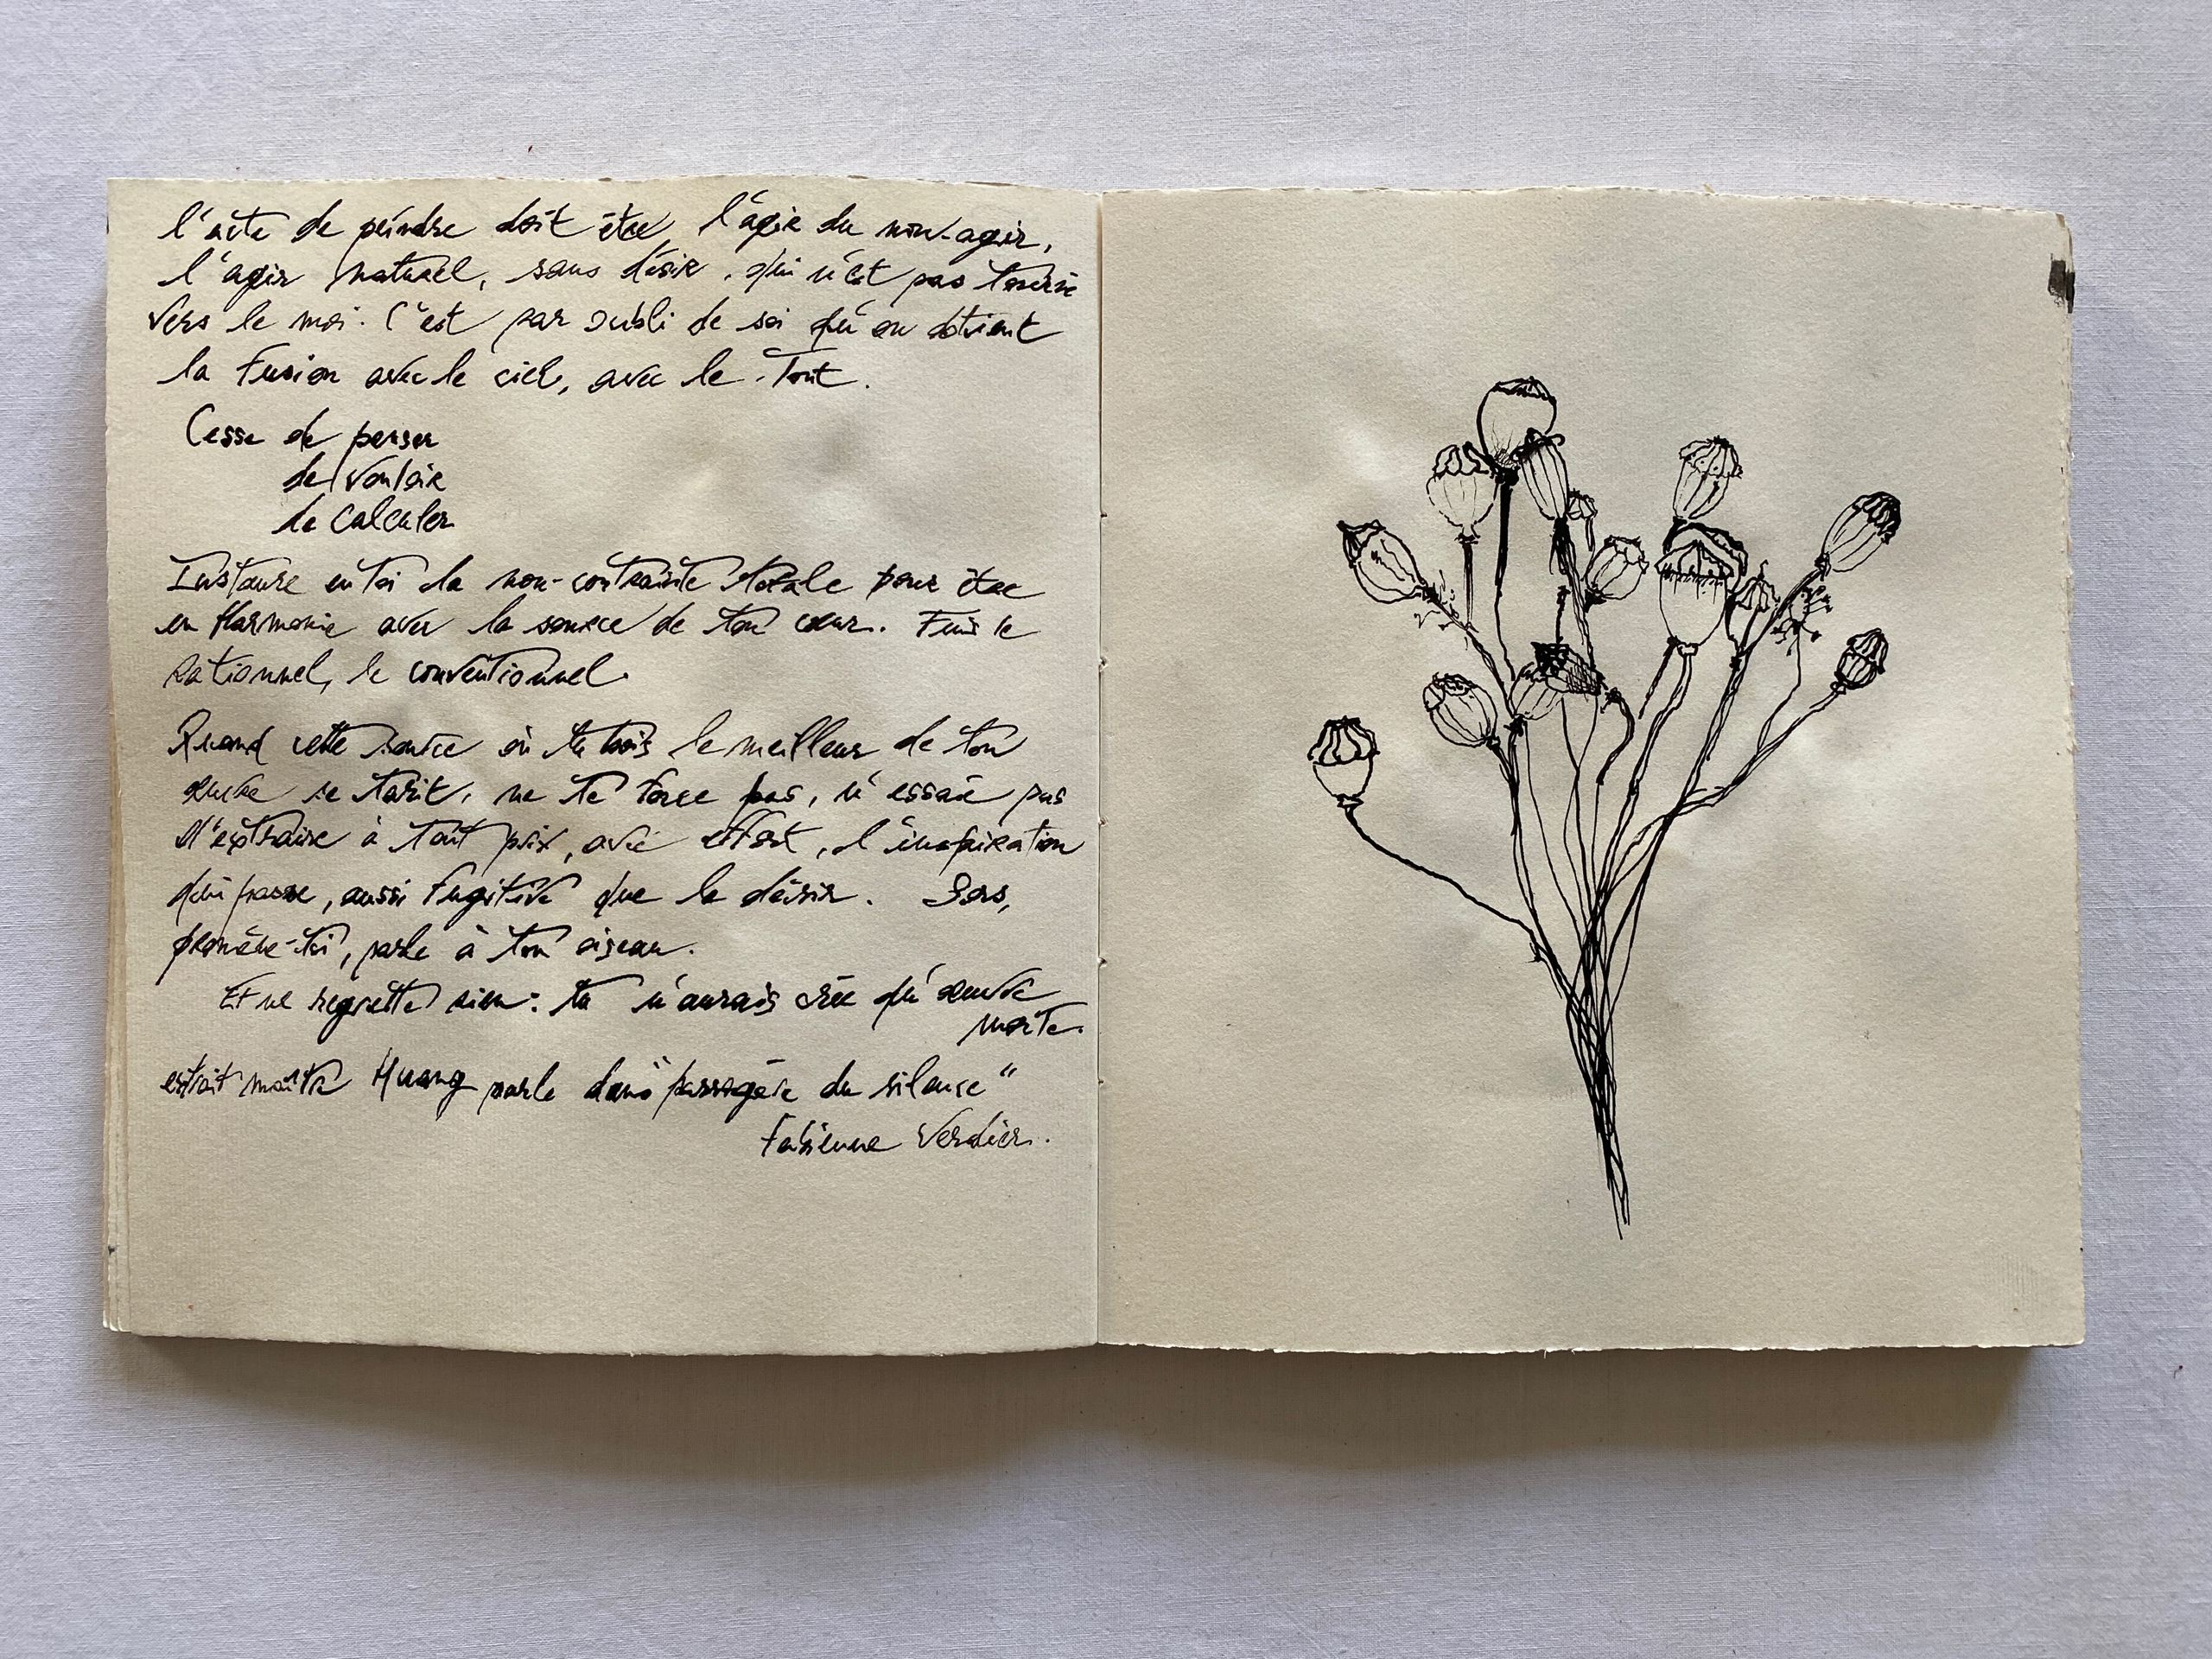 l'acte de peindre doit être l'agir du non-agir,
l'agir naturel, sans désir, qui n'est pas tourné
vers le moi. C'est par oubli de soi qu'on obtient
la Fusion avec le ciel, avec le Tout.
Cesse de penser
de vouloir
de calculer
Instaure en toi la non-contrainte totale pour être
en Harmonie avec la source de ton cœur. Fuis le
rationnel, le conventionnel.
Quand cette source où tu bois le meilleur de ton
œuvre se tarit, ne te force pas, n'essaie pas
d'extraire à tout prix, avec effort, l'inspiration
qui passe, aussi fugitive que le désir. Sors,
promène-toi, parle à ton oiseau.
Et ne regrette rien : tu n'aurais crée qu'œuvre
morte.
extrait maître Huang parle dans passagère du silence"
Fabienne Verdier.